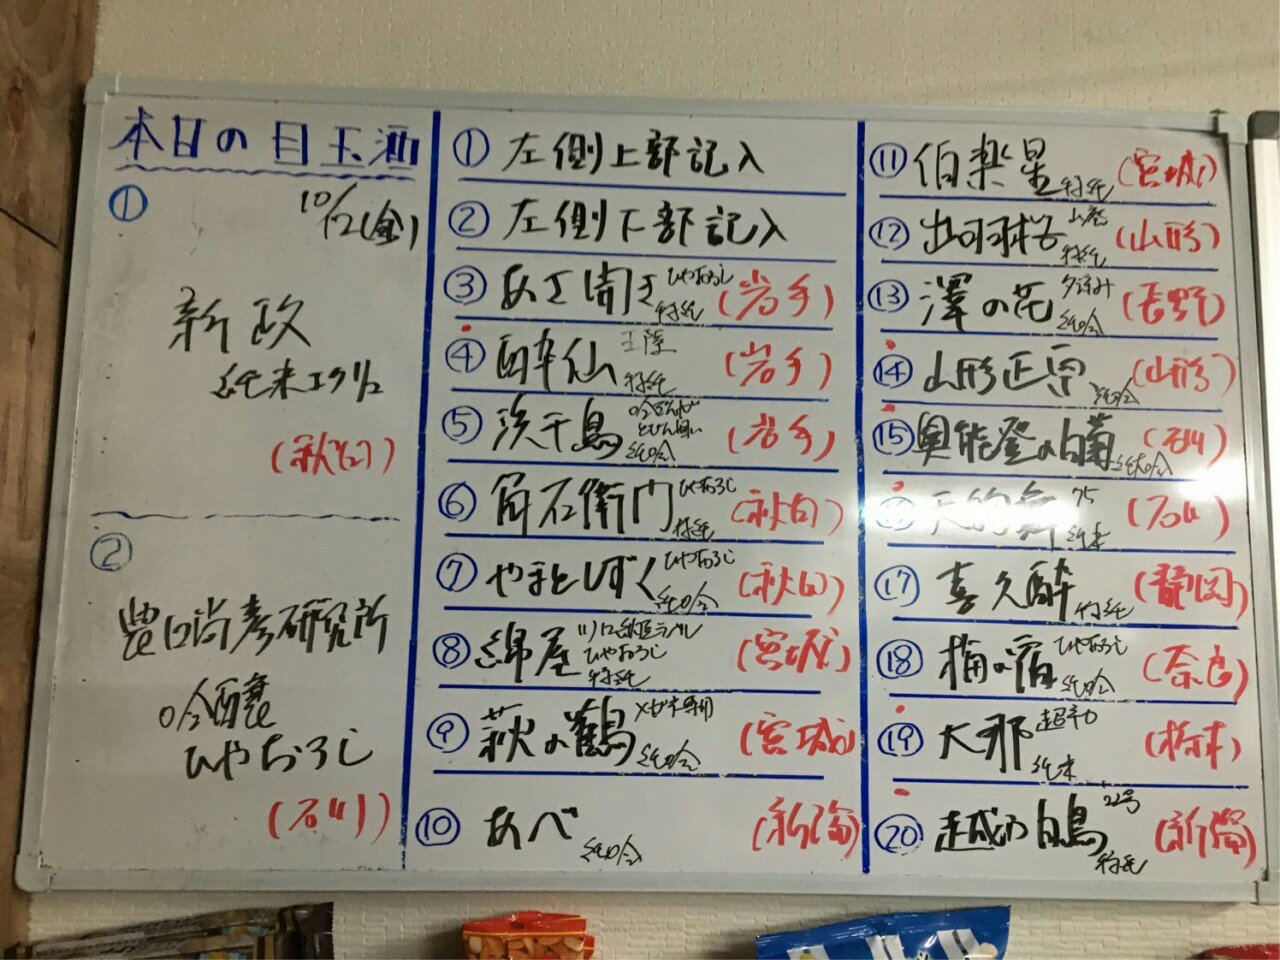 本日の目玉酒
① 10/12(金)
新政
純米エクリュ
(秋田)
②
農口尚彦研究所
吟醸
ひやおろし
(石川)
① 左側上部記入
② 左側下部記入
③ あさ開き ひやおろし 特純 (岩手)
④ 酔仙 特純 (岩手)
⑤ 浜千鳥 吟ぎんが 純吟 (岩手)
⑥ 角右衛門 ひやおろし 特純 (秋田)
⑦ やまとしずく ひやおろし 純吟 (秋田)
⑧ 綿屋 ひやおろし 特純 (宮城)
⑨ 萩の鶴 メガネ専用 純吟 (宮城)
⑩ あべ 純吟 (新潟)
⑪ 伯楽星 特純 (宮城)
⑫ 出羽桜 山廃 特純 (山形)
⑬ 澤の花 夕涼み 純吟 (長野)
⑭ 山形正宗 純吟 (山形)
⑮ 奥能登の白菊 純吟 (石川)
⑯ 天的舞 75 純米 (石川)
⑰ 喜久酔 特純 (静岡)
⑱ 梅の宿 ひやおろし 純吟 (奈良)
⑲ 大那 超辛口 純米 (栃木)
⑳ 越の白鳥 22号 特純 (新潟)